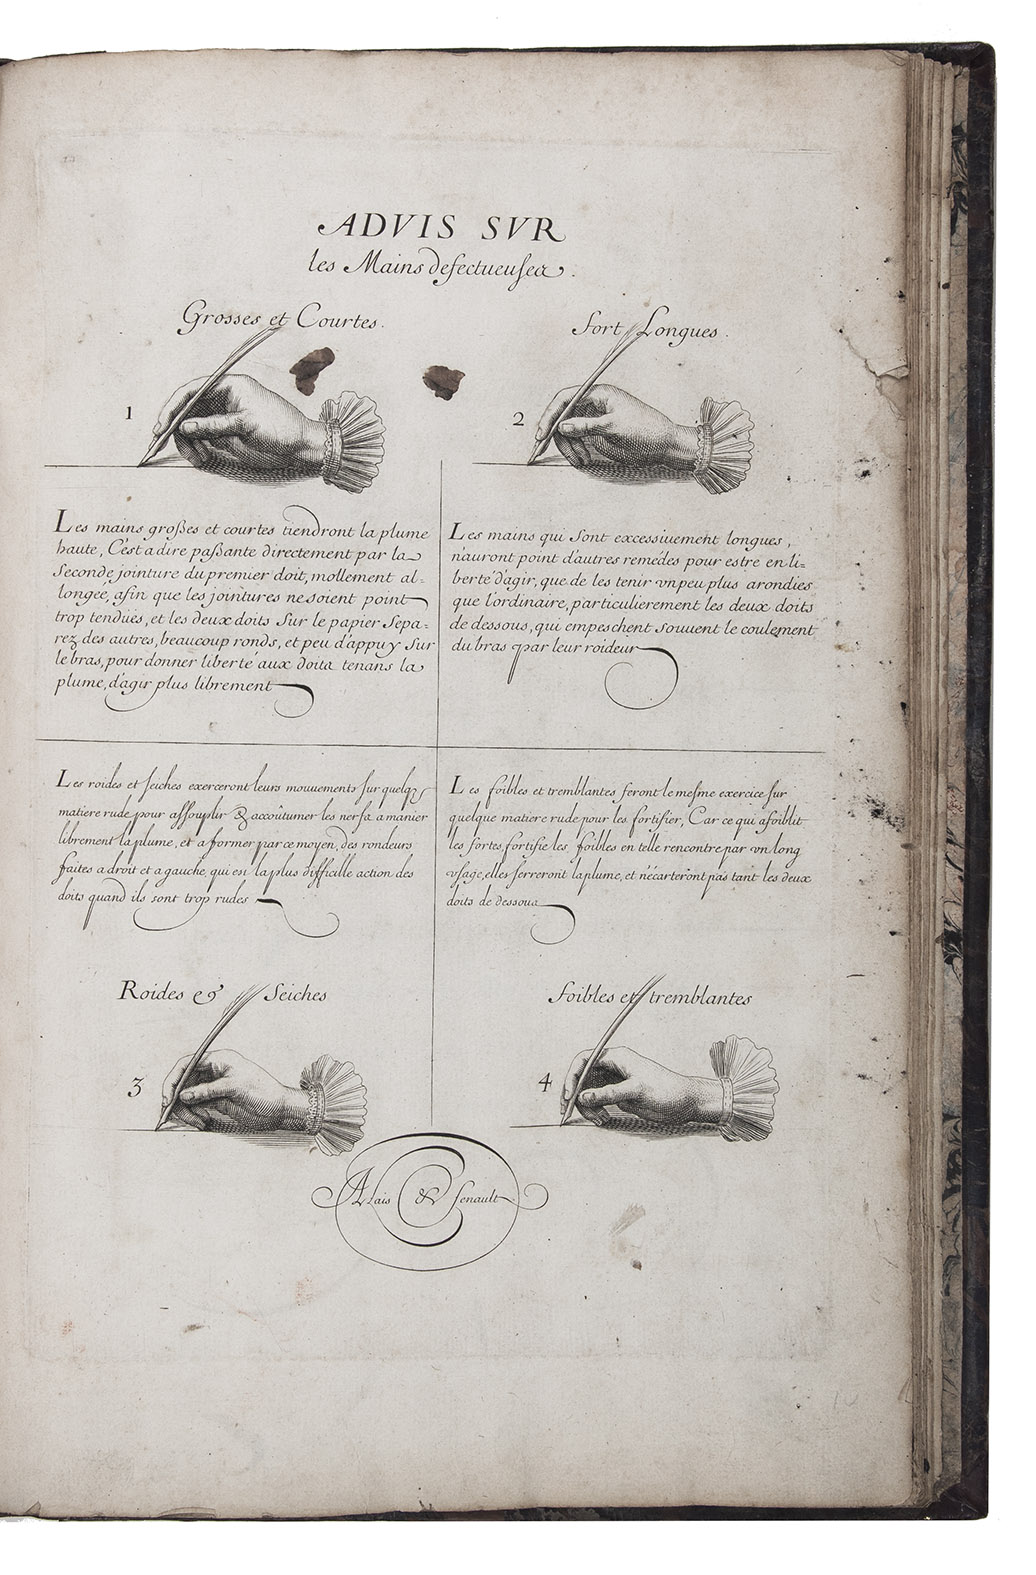 ADVIS SVR
les Mains defectueuses.
Grosses et Courtes.
1
Les mains großes et courtes tiendront la plume
haute, C'est a dire paßante directement par la
Seconde jointure du premier doit, mollement al=
longée, afin que les jointures ne soient point
trop tendües, et les deux doits sur le papier sepa=
rez des autres, beaucoup ronds, et peu d'appuy sur
le bras, pour donner liberté aux doits tenans la
plume, d'agir plus librement
Fort Longues.
2
Les mains qui sont excessiuement longues,
n'auront point d'autres remédes pour estre en li=
berté d'agir, que de les tenir vn peu plus arondies
que l'ordinaire, particulierement les deux doits
de dessous, qui empeschent souuent le coulement
du bras par leur roideur
Les roides et seiches exerceront leurs mouuements sur quelq
matiere rude pour assouplir & accoûtumer les nerfs a manier
librement la plume, et a former par ce moyen, des rondeurs
faites a droit et a gauche, qui est la plus difficille action des
doits quand ils sont trop rudes
Roides & Seiches
3
Les foibles et tremblantes feront le mesme exercice sur
quelque matiere rude pour les fortifier, Car ce qui afoiblit
les fortes, fortifie les foibles en telle rencontre par vn long
vsage, elles serreront la plume, et n'écarteront pas tant les deux
doits de dessous
Foibles et tremblantes
4
Alais & Senault